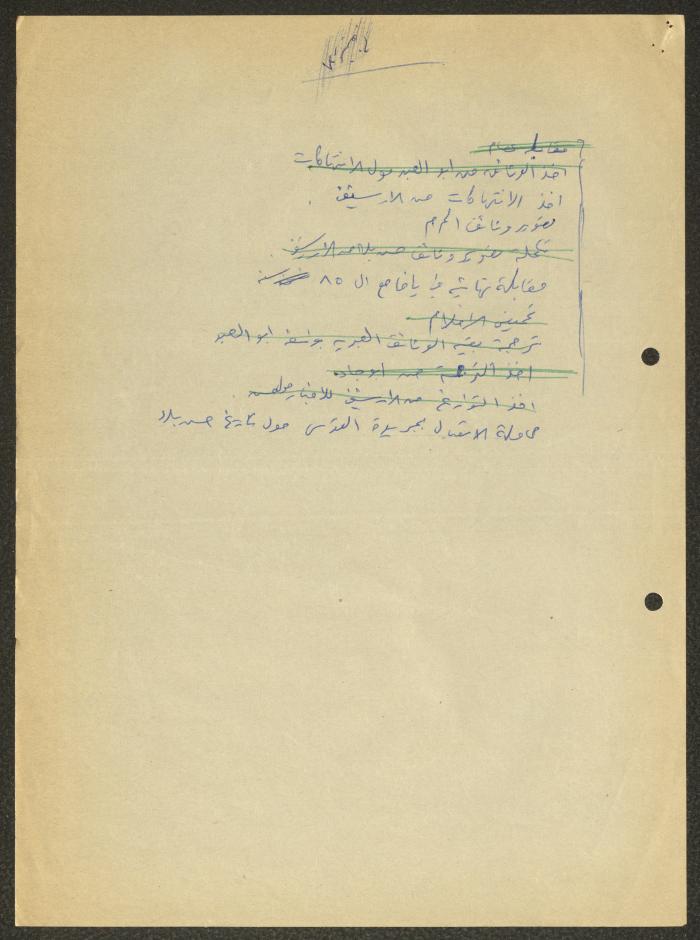 مقابلة عصام
اخذ الوثائق من ابو العبد حول الانتهاكات
اخذ الانتهاكات من الارشيف.
تصوير وثائق الحرم
تكملة تصوير وثائق حسن بك من الارشيف
مقابلة نهائية في يافا مع ال ٨٥
تحميض الافلام
ترجمة بقية الوثائق العبرية يوسف ابو العبد
اخذ الترجمة من ابو جلال
اخذ التواريخ من الارشيف للاخبار
محاولة الاتصال بجريدة القدس حول تاريخ حسن بك